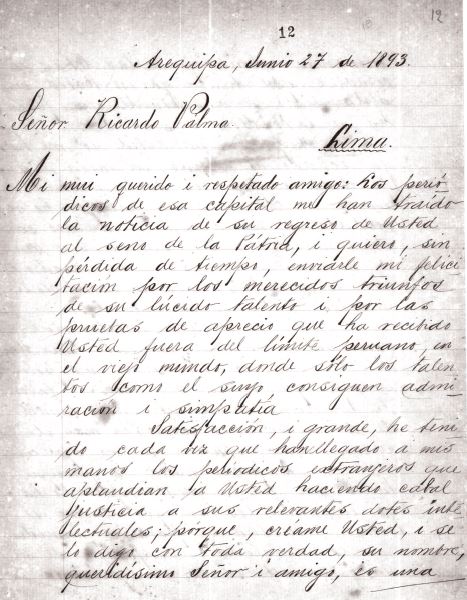 12
12
Arequipa, Junio 27 de 1893.
Señor Ricardo Palma.
Lima.
Mi mui querido i respetado amigo: Los perió-
dicos de esa capital me han traido
la noticia de su regreso de Usted
al seno de la Pátria, i quiero, sin
pérdida de tiempo, enviarle mi felici-
tación por los merecidos triunfos
de su lúcido talento i por las
pruebas de aprecio que ha recibido
Usted fuera del límite peruano, en
el viejo mundo, donde sólo los talen-
tos como el suyo consiguen admi-
ración i simpatía
Satisfacción, i grande, he teni-
do cada vez que han llegado a mis
manos los periodicos extranjeros que
aplaudian a Usted haciendo cabal
justicia a sus relevantes dotes inte-
lectuales; porque, créame Usted, i se
lo digo con toda verdad, su nombre,
queridísimo Señor i amigo, es una